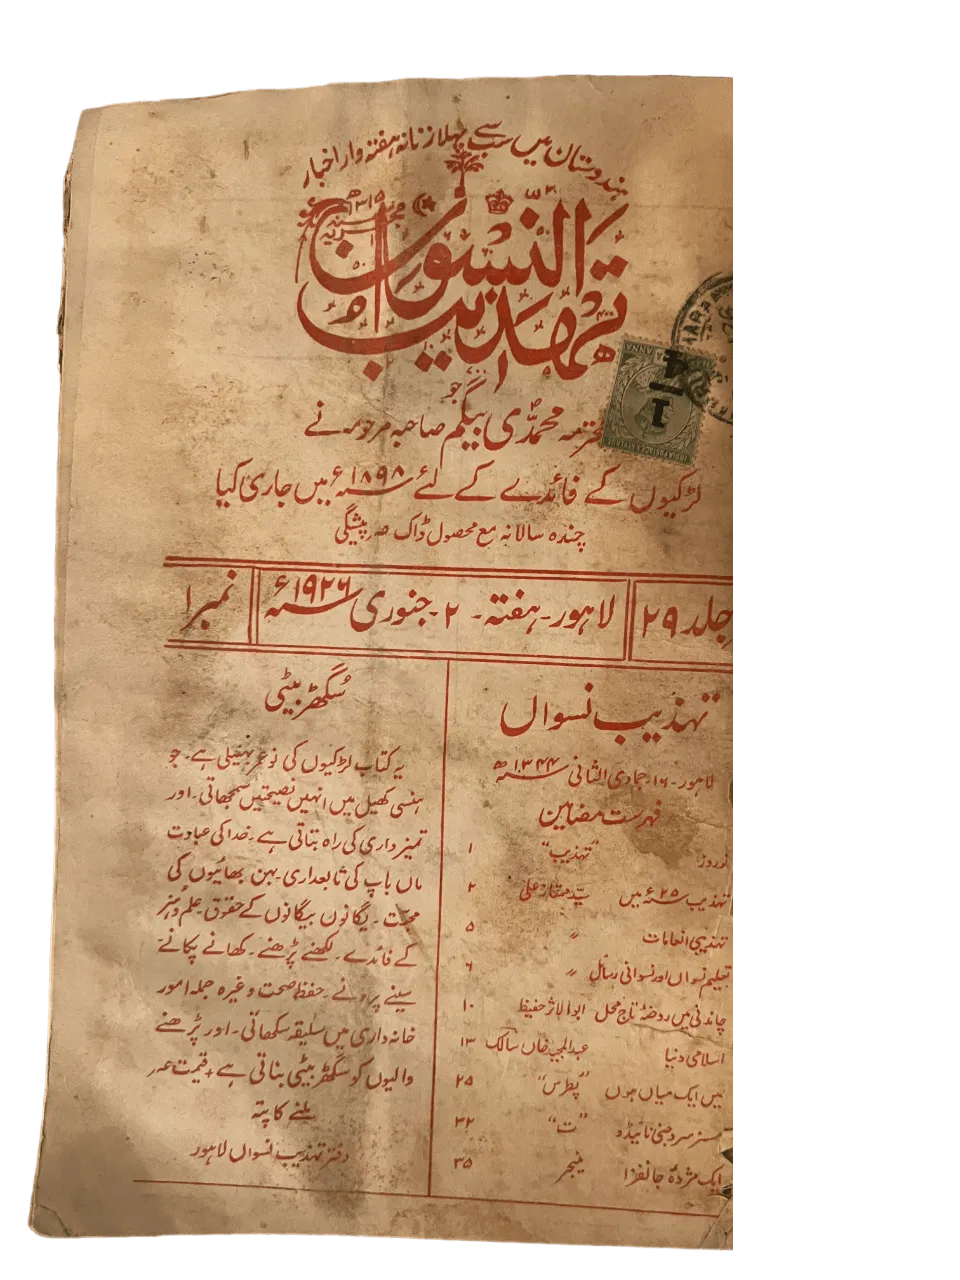 ہندوستان میں سب سے پہلا زنانہ ہفتہ وار اخبار
تہذیب النسواں
۱۳۱۵ھ
جو
محترمہ محمدی بیگم صاحبہ مرحومہ نے
لڑکیوں کے فائدے کے لئے ۱۸۹۸ء میں جاری کیا
چندہ سالانہ مع محصول ڈاک صہ پیشگی
جلد ۲۹
لاہور۔ ہفتہ۔ ۲۔ جنوری ۱۹۲۶ء
نمبر ۱
تہذیب نسواں
لاہور۔ ۱۶۔ جمادی الثانی ۱۳۴۴ھ
فہرست مضامین
نوروز "تہذیب" ۱
تہذیب ۲۵ء میں سید ممتاز علی ۲
تہذیبی انعامات " ۵
تعلیم نسواں اور نسوانی رسائل " ۶
چاندنی میں روضۂ تاج محل ابو الاثر حفیظ ۱۰
اسلامی دنیا عبدالمجید خاں سالک ۱۳
میں ایک میاں ہوں "پطرس" ۲۵
مسز سروجنی نائیڈو "ت" ۳۲
ایک مژدہ جانفزا منیجر ۳۵
سگھڑ بیٹی
یہ کتاب لڑکیوں کی نوعمر سہیلی ہے۔ جو
ہنسی کھیل میں انہیں نصیحتیں سمجھاتی۔ اور
تمیزداری کی راہ بتاتی ہے۔ خدا کی عبادت
ماں باپ کی تابعداری۔ بہن بھائیوں کی
محبت۔ یگانوں بیگانوں کے حقوق۔ علم و ہنر
کے فائدے۔ لکھنے پڑھنے۔ کھانے پکانے
سینے پرونے۔ حفظ صحت وغیرہ جملہ امور
خانہ داری میں سلیقہ سکھاتی۔ اور پڑھنے
والیوں کو سگھڑ بیٹی بناتی ہے + قیمت عہ
ملنے کا پتہ
دفتر تہذیب نسواں لاہور